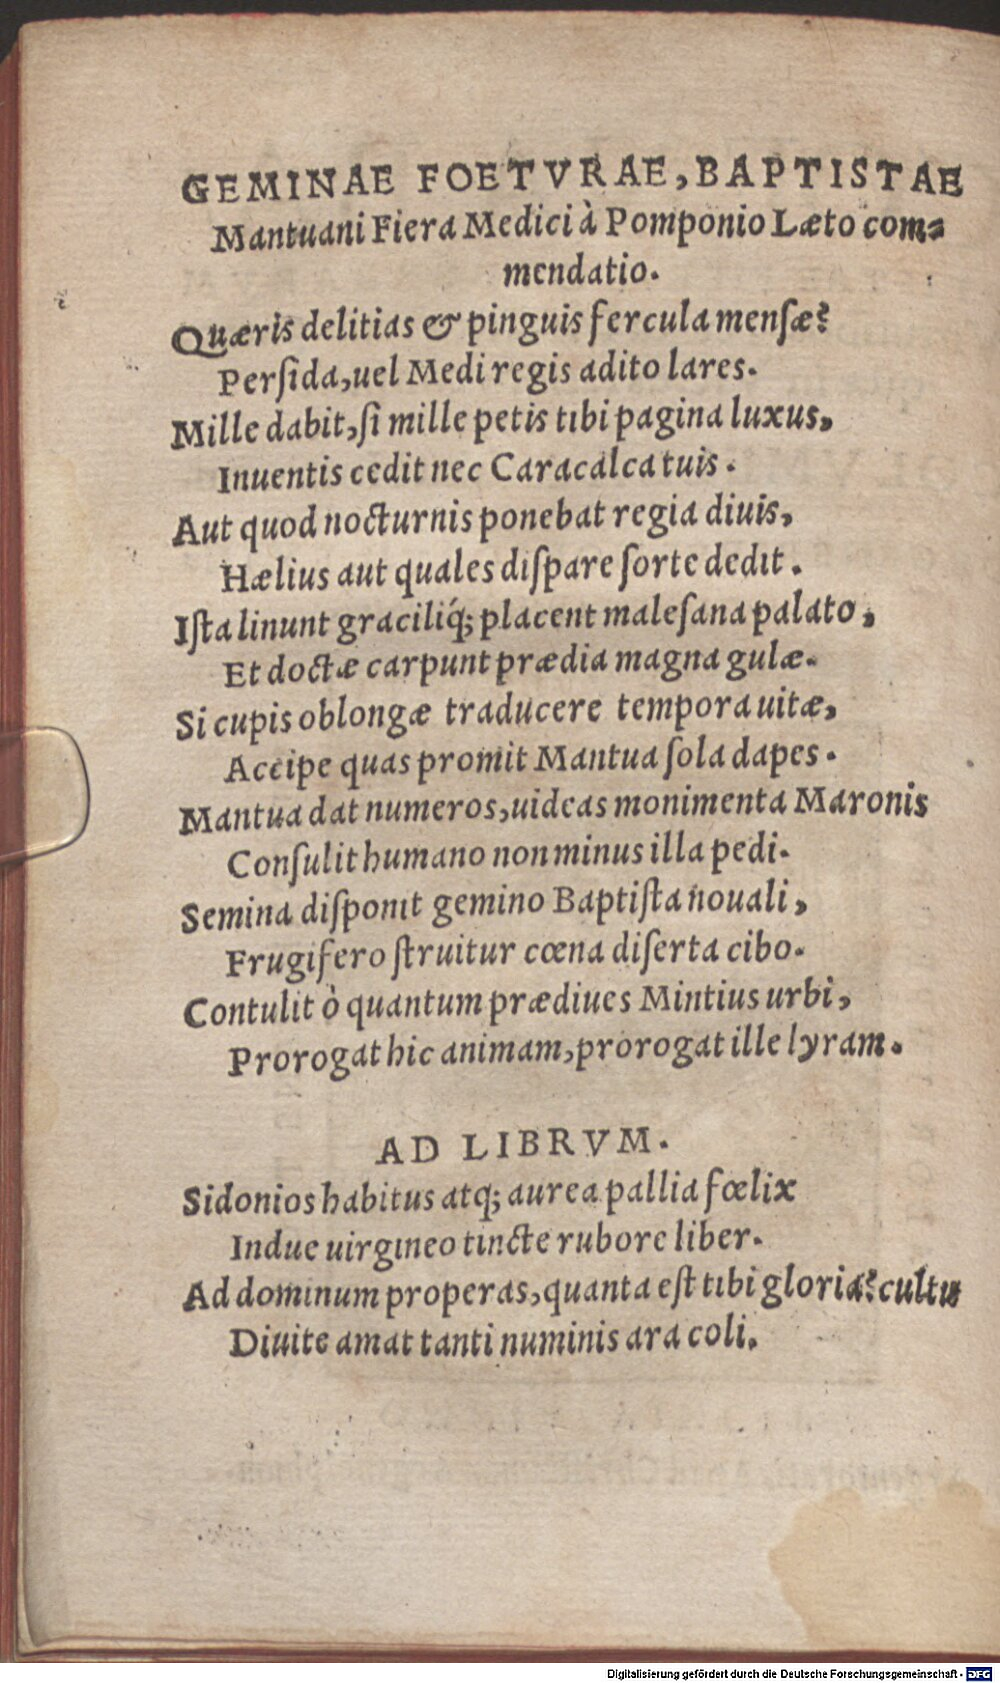 GEMINAE FOETVRAE, BAPTISTAE
Mantuani Fiera Medici à Pomponio Læto com⸗
mendatio.
Quæris delitias & pinguis fercula mensæ?
Persida, uel Medi regis adito lares.
Mille dabit, si mille petis tibi pagina luxus,
Inuentis cedit nec Caracalca tuis.
Aut quod nocturnis ponebat regia diuis,
Hælius aut quales dispare sorte dedit.
Ista linunt graciliq́; placent malesana palato,
Et doctæ carpunt prædia magna gulæ.
Si cupis oblongæ traducere tempora uitæ,
Accipe quas promit Mantua sola dapes.
Mantua dat numeros, uideas monimenta Maronis
Consulit humano non minus illa pedi.
Semina disponit gemino Baptista nouali,
Frugifero struitur cœna diserta cibo.
Contulit ò quantum prædiues Mintius urbi,
Prorogat hic animam, prorogat ille lyram.
AD LIBRVM.
Sidonios habitus atq; aurea pallia fœlix
Indue uirgineo tincte rubore liber.
Ad dominum properas, quanta est tibi gloria? cultu
Diuite amat tanti numinis ara coli.
Digitalisierung gefördert durch die Deutsche Forschungsgemeinschaft - DFG